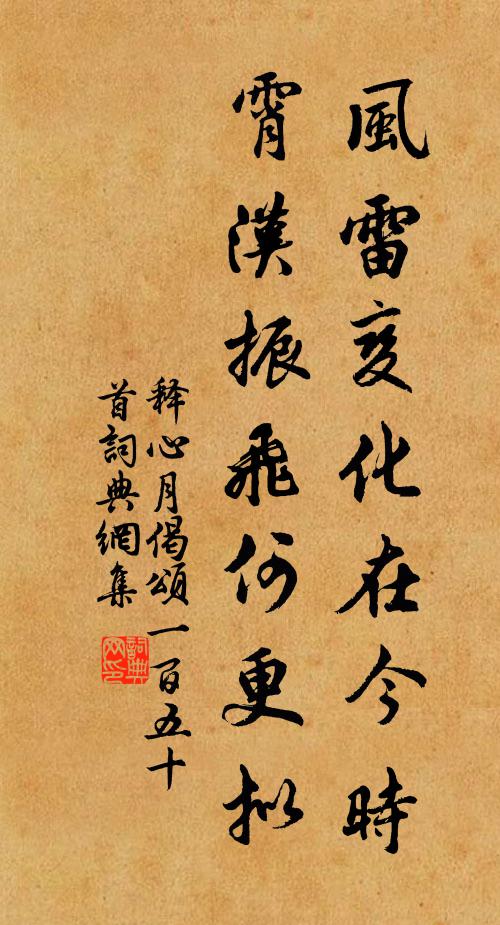 風雷变化在今時
霄漢振飛何更拟
释心月偈頌一百五十
首詞典網集
詞典
网印